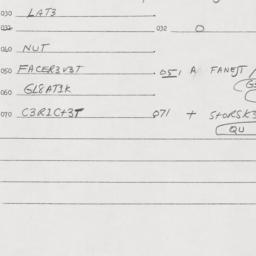 030 LAT3
032 032 O
040 NUT
050 FACER3V3T 051 A FANEJT
060 GL8AT1K
070 C3R1C+3T 071 + STORSK3
QU